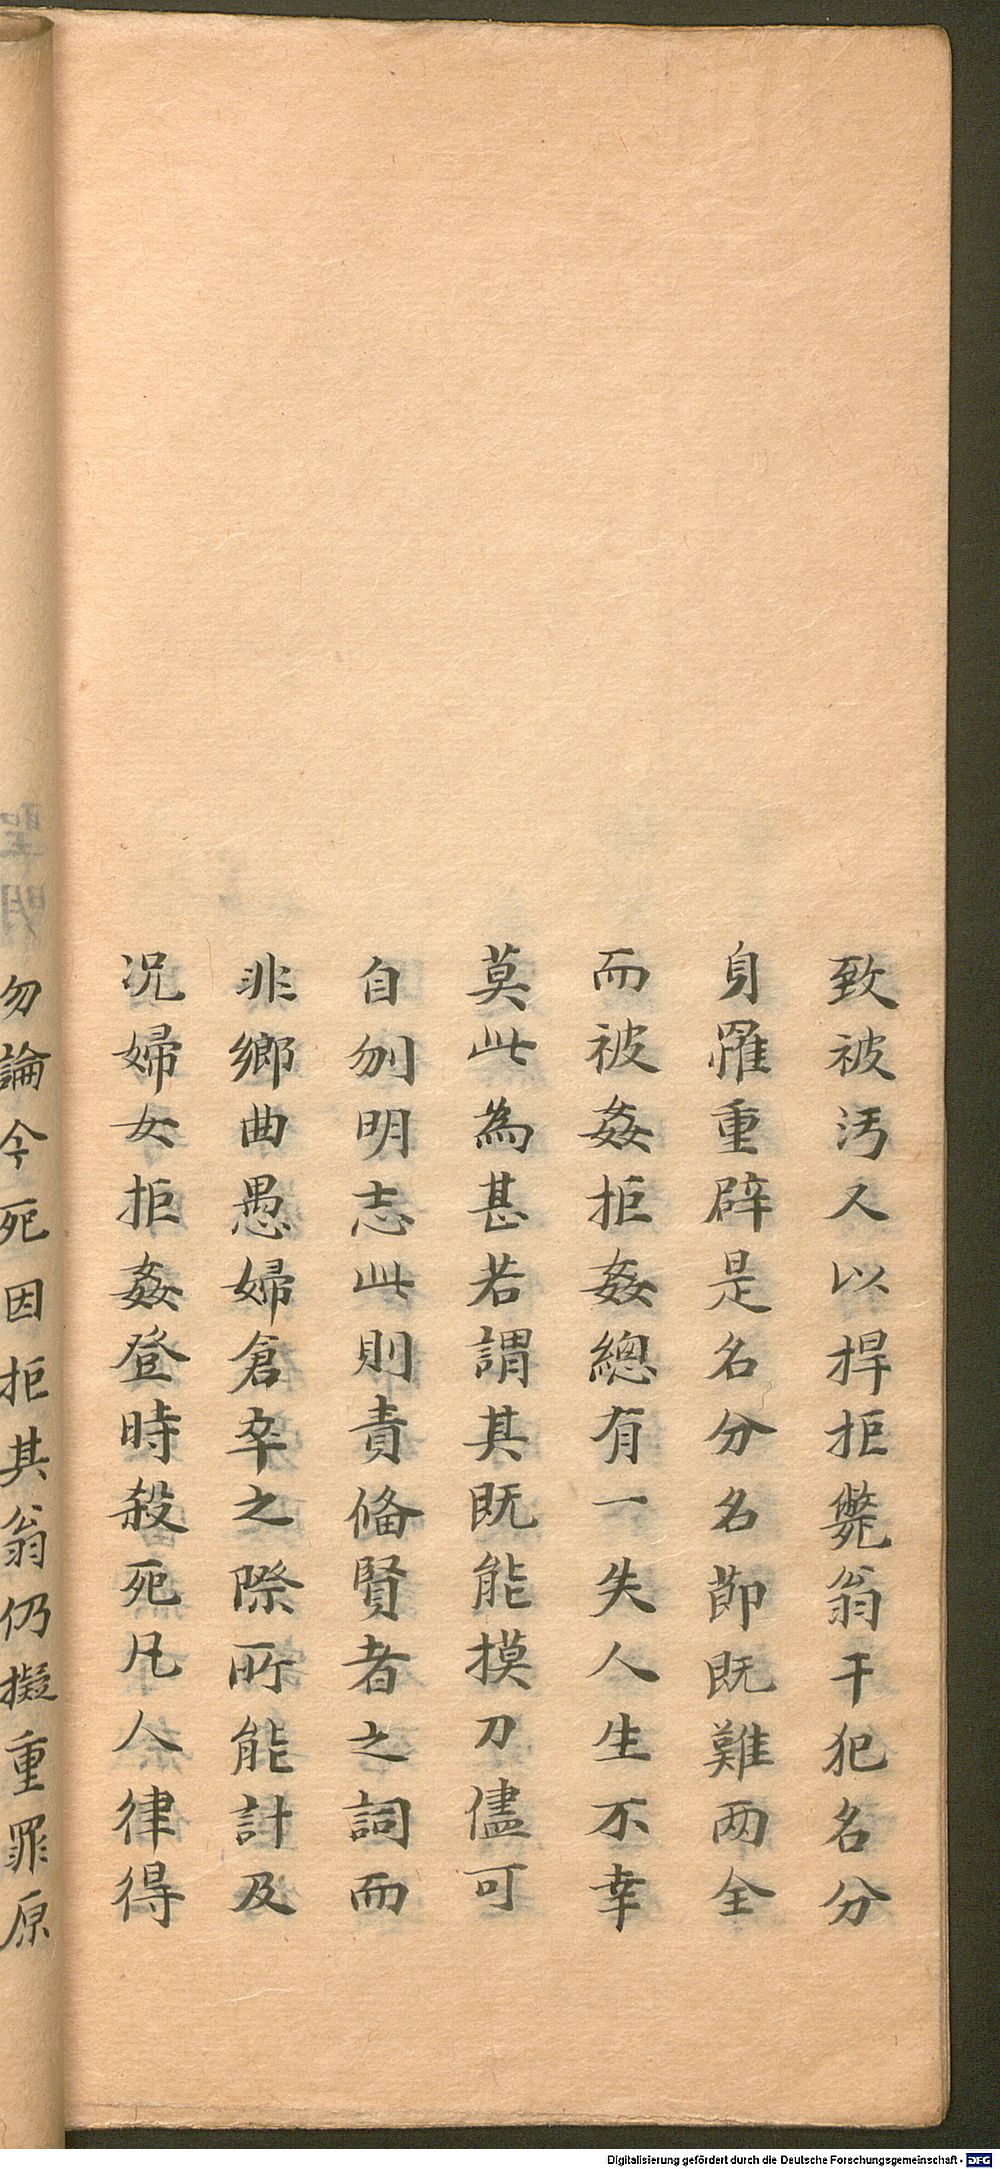 致被汚又以捍拒斃翁干犯名分
身罹重辟是名分名節既難两全
而被姦拒姦總有一失人生不幸
莫此為甚若謂其既能摸刀儘可
自刎明志此則責備賢者之詞而
非鄉曲愚婦倉卒之際所能計及
况婦女拒姦登時殺死凡人律得
勿論今死因拒其翁仍擬重罪原
Digitalisierung gefördert durch die Deutsche Forschungsgemeinschaft - DFG